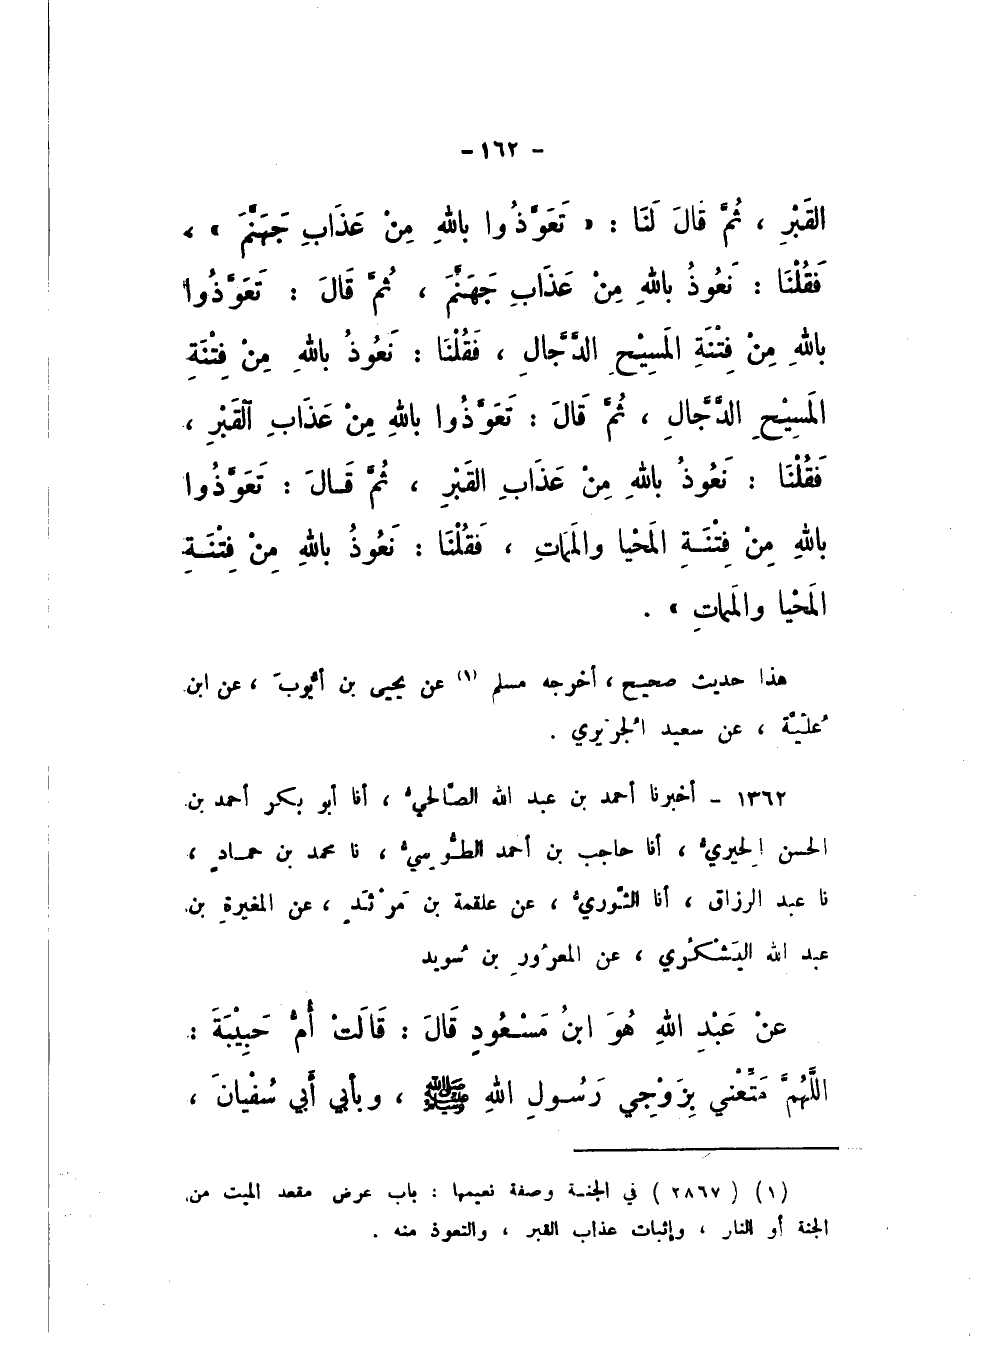 - ١٦٢ -
القَبْرِ ، ثُمَّ قَالَ لَنَا : « تَعَوَّذُوا بِاللهِ مِنْ عَذَابِ جَهَنَّمَ » ،
فَقُلْنَا : نَعُوذُ بِاللهِ مِنْ عَذَابِ جَهَنَّمَ ، ثُمَّ قَالَ : تَعَوَّذُوا
بِاللهِ مِنْ فِتْنَةِ المَسِيْحِ الدَّجَّالِ ، فَقُلْنَا : نَعُوذُ بِاللهِ مِنْ فِتْنَةِ
المَسِيْحِ الدَّجَّالِ ، ثُمَّ قَالَ : تَعَوَّذُوا بِاللهِ مِنْ عَذَابِ القَبْرِ ،
فَقُلْنَا : نَعُوذُ بِاللهِ مِنْ عَذَابِ القَبْرِ ، ثُمَّ قَالَ : تَعَوَّذُوا
بِاللهِ مِنْ فِتْنَةِ المَحْيا والمَمَاتِ ، فَقُلْنَا : نَعُوذُ بِاللهِ مِنْ فِتْنَةِ
المَحْيا والمَمَاتِ » .
هذا حديث صحيح ، أخرجه مسلم (١) عن يحيى بن أيُّوبَ ، عن ابن
عُلَيَّة ، عن سعيد الجُرَيري .
١٣٦٢ - أخبرنا أحمد بن عبد الله الصَّالحيُّ ، أنا أبو بكر أحمد بن
الحسن الحِيريُّ ، أنا حاجب بن أحمد الطُّوسيُّ ، نا محمد بن حمادٍ ،
نا عبد الرزاق ، أنا الثَّوريُّ ، عن علقمة بن مَرْثَدٍ ، عن المغيرةِ بن
عبد الله اليَشْكُري ، عن المعرُورِ بن سُويد
عنْ عَبْدِ اللهِ هُوَ ابنُ مَسْعُودٍ قَالَ : قَالَتْ أُمُّ حَبِيْبَةَ :
اللَّهُمَّ مَتِّعْنِي بِزَوْجِي رَسُولِ اللهِ ﷺ ، وبأبي أَبي سُفْيانَ ،
(١) (٢٨٦٧) في الجنة وصفة نعيمها : باب عرض مقعد الميت من
الجنة أو النار ، وإثبات عذاب القبر ، والتعوذ منه .